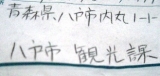 青森県八戸市内丸1-1-1
八戸市 観光課